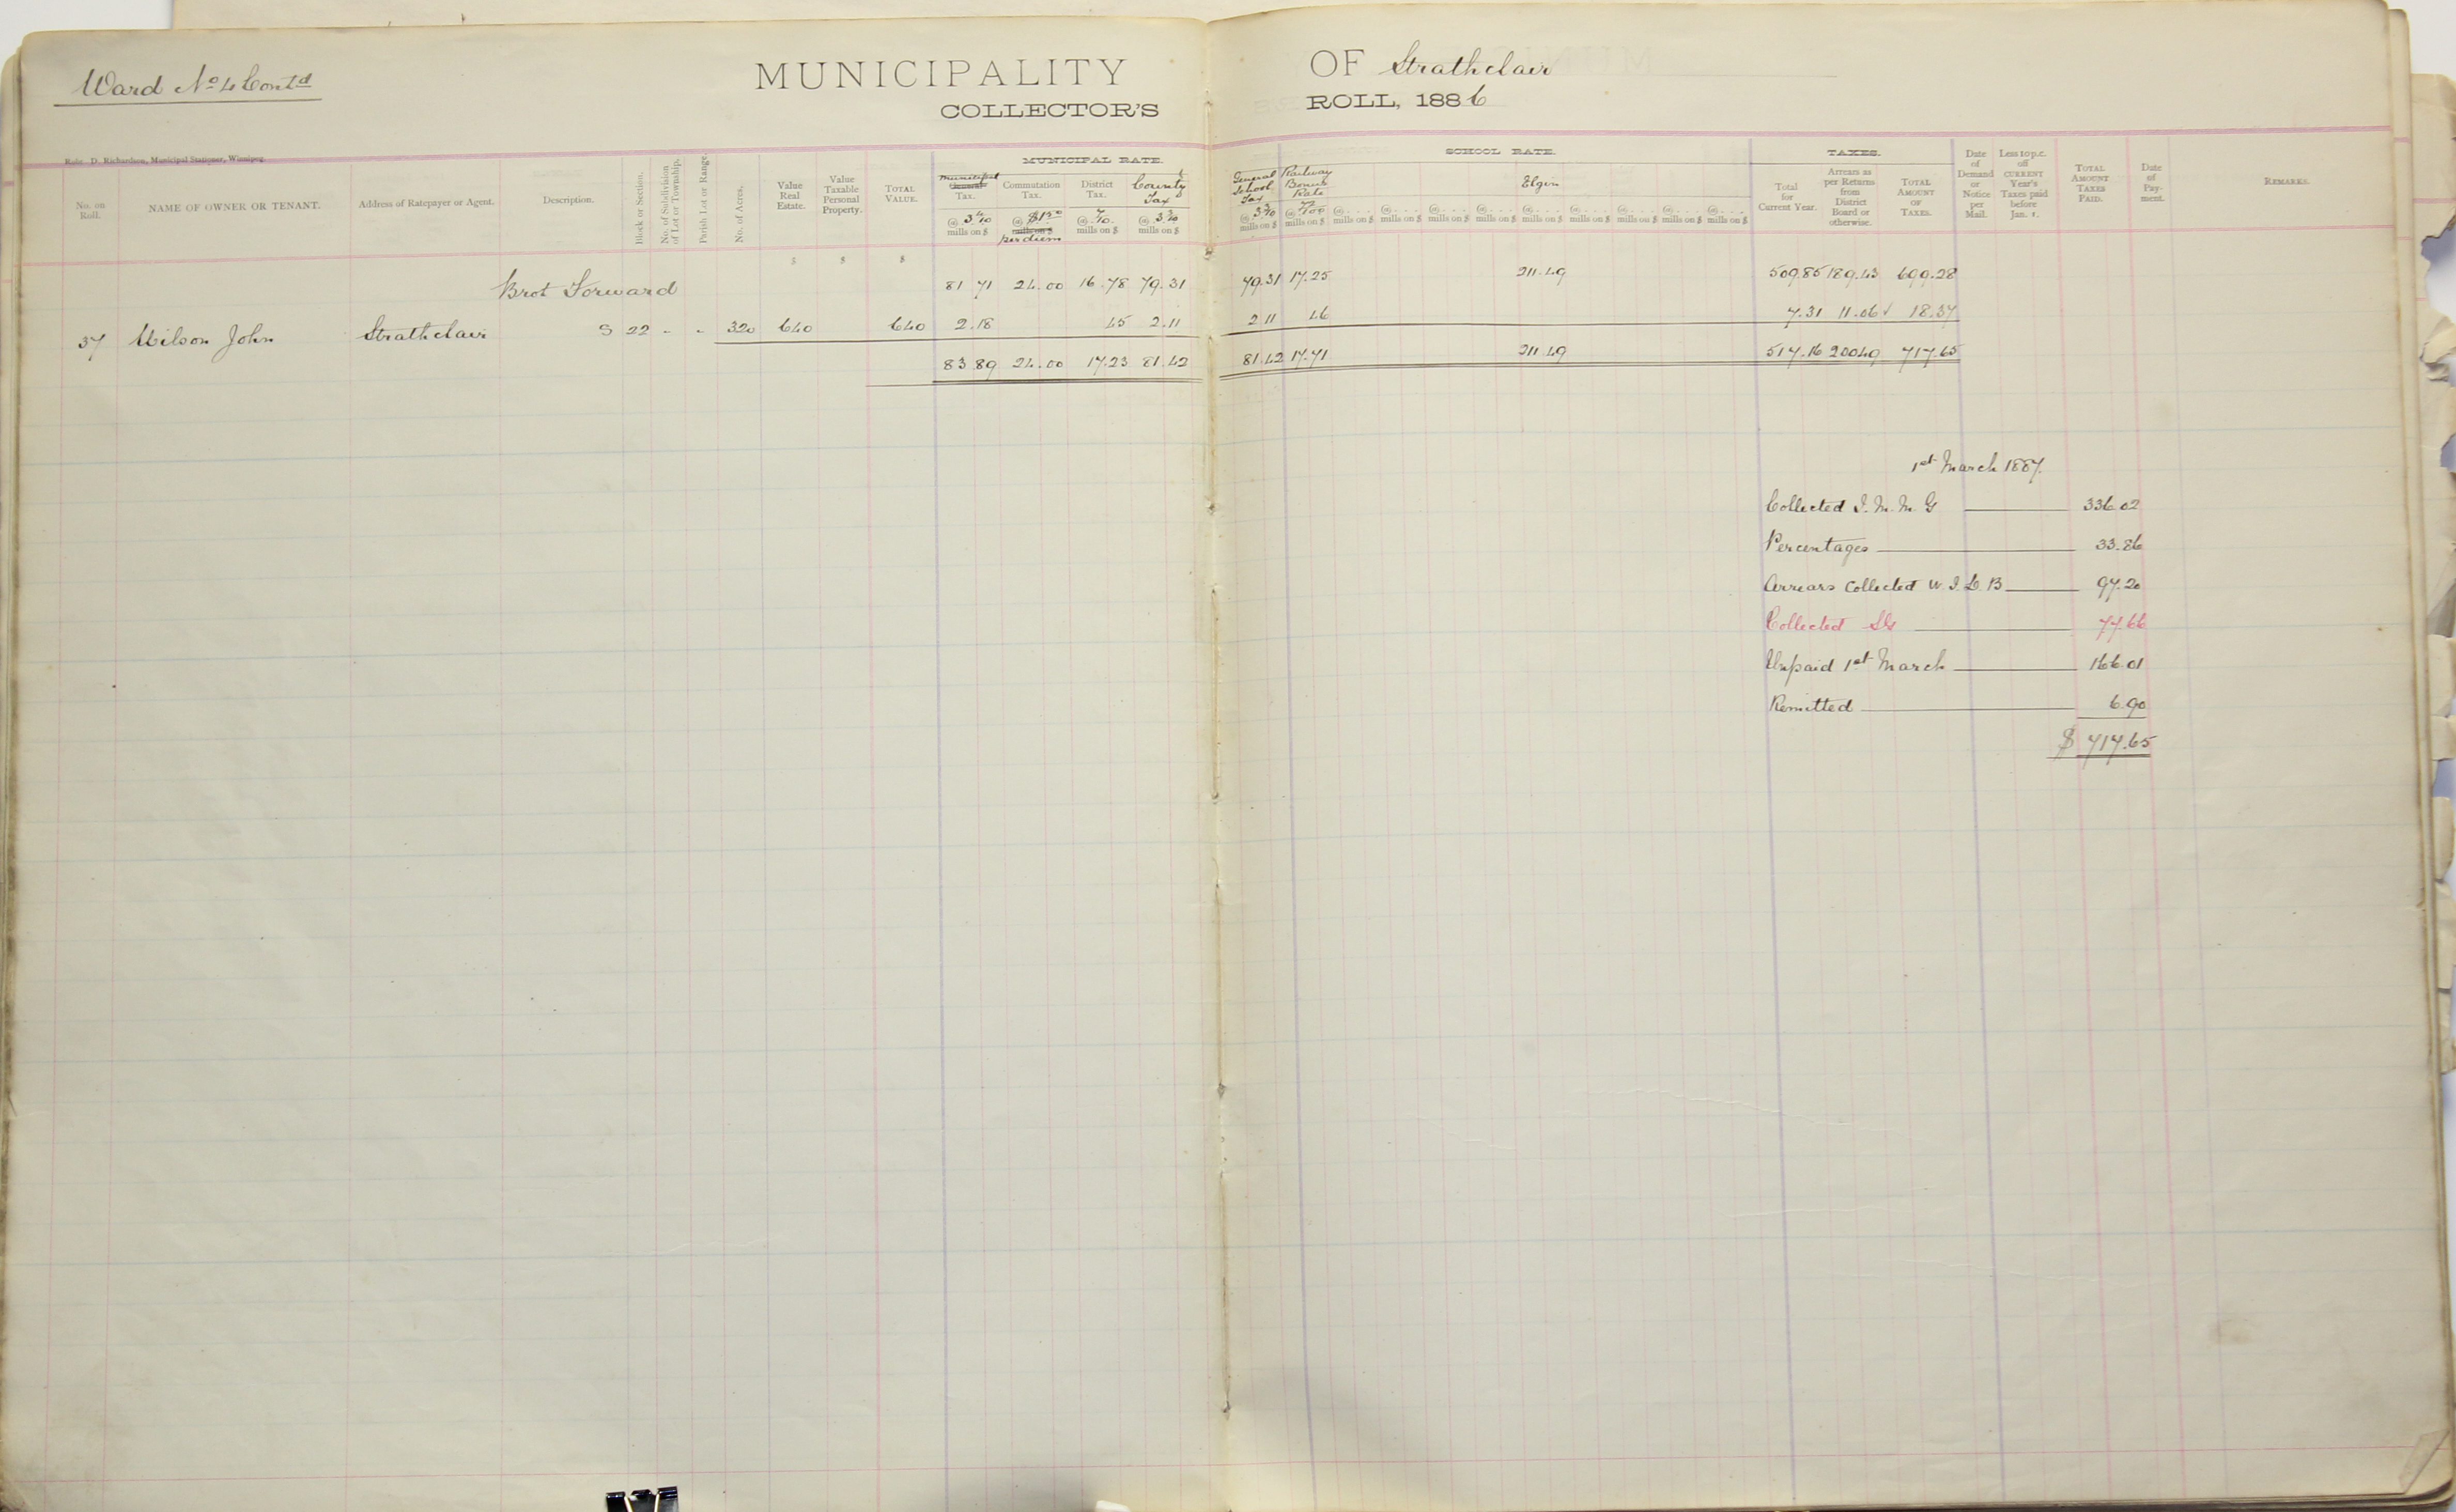 Ward No 4 Contd
MUNICIPALITY OF Strathclair
COLLECTOR'S ROLL, 1886
Robt. D. Richardson, Municipal Stationer, Winnipeg.
MUNICIPAL RATE. SCHOOL RATE. TAXES.
No. on Roll.
NAME OF OWNER OR TENANT.
Address of Ratepayer or Agent.
Description.
Block or Section.
No. of Subdivision of Lot or Township.
Parish Lot or Range.
No. of Acres.
Value Real Estate.
Value Taxable Personal Property.
TOTAL VALUE.
Municipal General Tax. @ 3 4/10 mills on $
Commutation Tax. @ $1.50 mills on $ per diem
District Tax. @ 7/10 mills on $
County Tax @ 3 3/10 mills on $
General School Tax @ 3 3/10 mills on $
Railway Bonus Rate @ 72/100 mills on $
Elgin
@ . . . mills on $ @ . . . mills on $ @ . . . mills on $ @ . . . mills on $ @ . . . mills on $ @ . . . mills on $ @ . . . mills on $ @ . . . mills on $ @ . . . mills on $
Total for Current Year.
Arrears as per Returns from District Board or otherwise.
TOTAL AMOUNT OF TAXES.
Date of Demand or Notice per Mail.
Less 10 p.c. off CURRENT Year's Taxes paid before Jan. 1.
TOTAL AMOUNT TAXES PAID.
Date of Payment.
REMARKS.
$ $ $
Brot Forward 81 71 24.00 16.78 79.31 79.31 17.25 211.49 509.85 189.43 699.28
37 Wilson John Strathclair S 22 - - 320 640 640 2.18 45 2.11 2 11 46 7.31 11.06 ✓ 18.37
83 89 24.00 17.23 81.42 81.42 17.71 211.49 517.16 200.49 717.65
1st March 1887.
Collected I. M. M. G 336.02
Percentages 33.86
Arrears Collected W. I. L. B 97.20
Collected SG 77.66
Unpaid 1st March 166.01
Remitted 6.90
$ 717.65